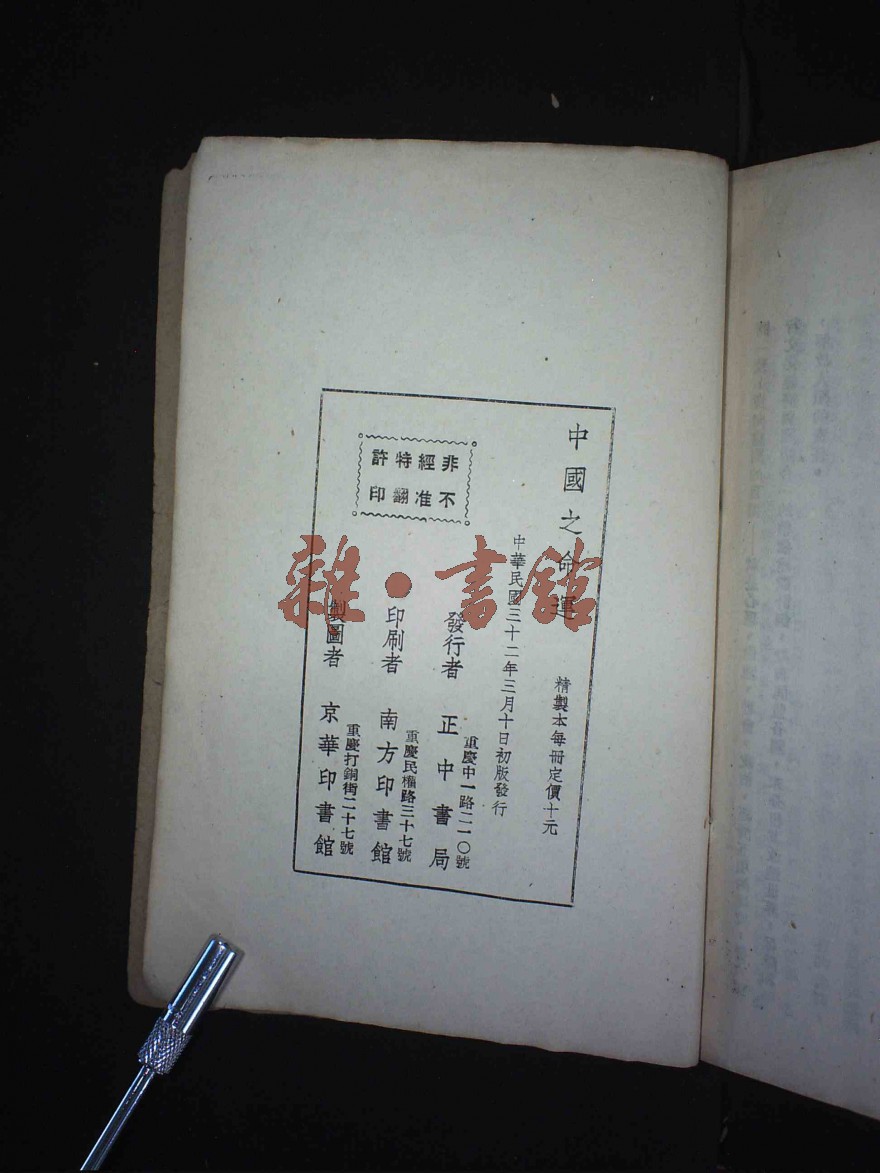 中國之命運
精製本每冊定價十元
中華民國三十二年三月十日初版發行
非經特許
不准翻印
發行者 正中書局
重慶中一路二一〇號
印刷者 南方印書館
重慶民權路三十七號
製圖者 京華印書館
重慶打銅街二十七號
雜·書館